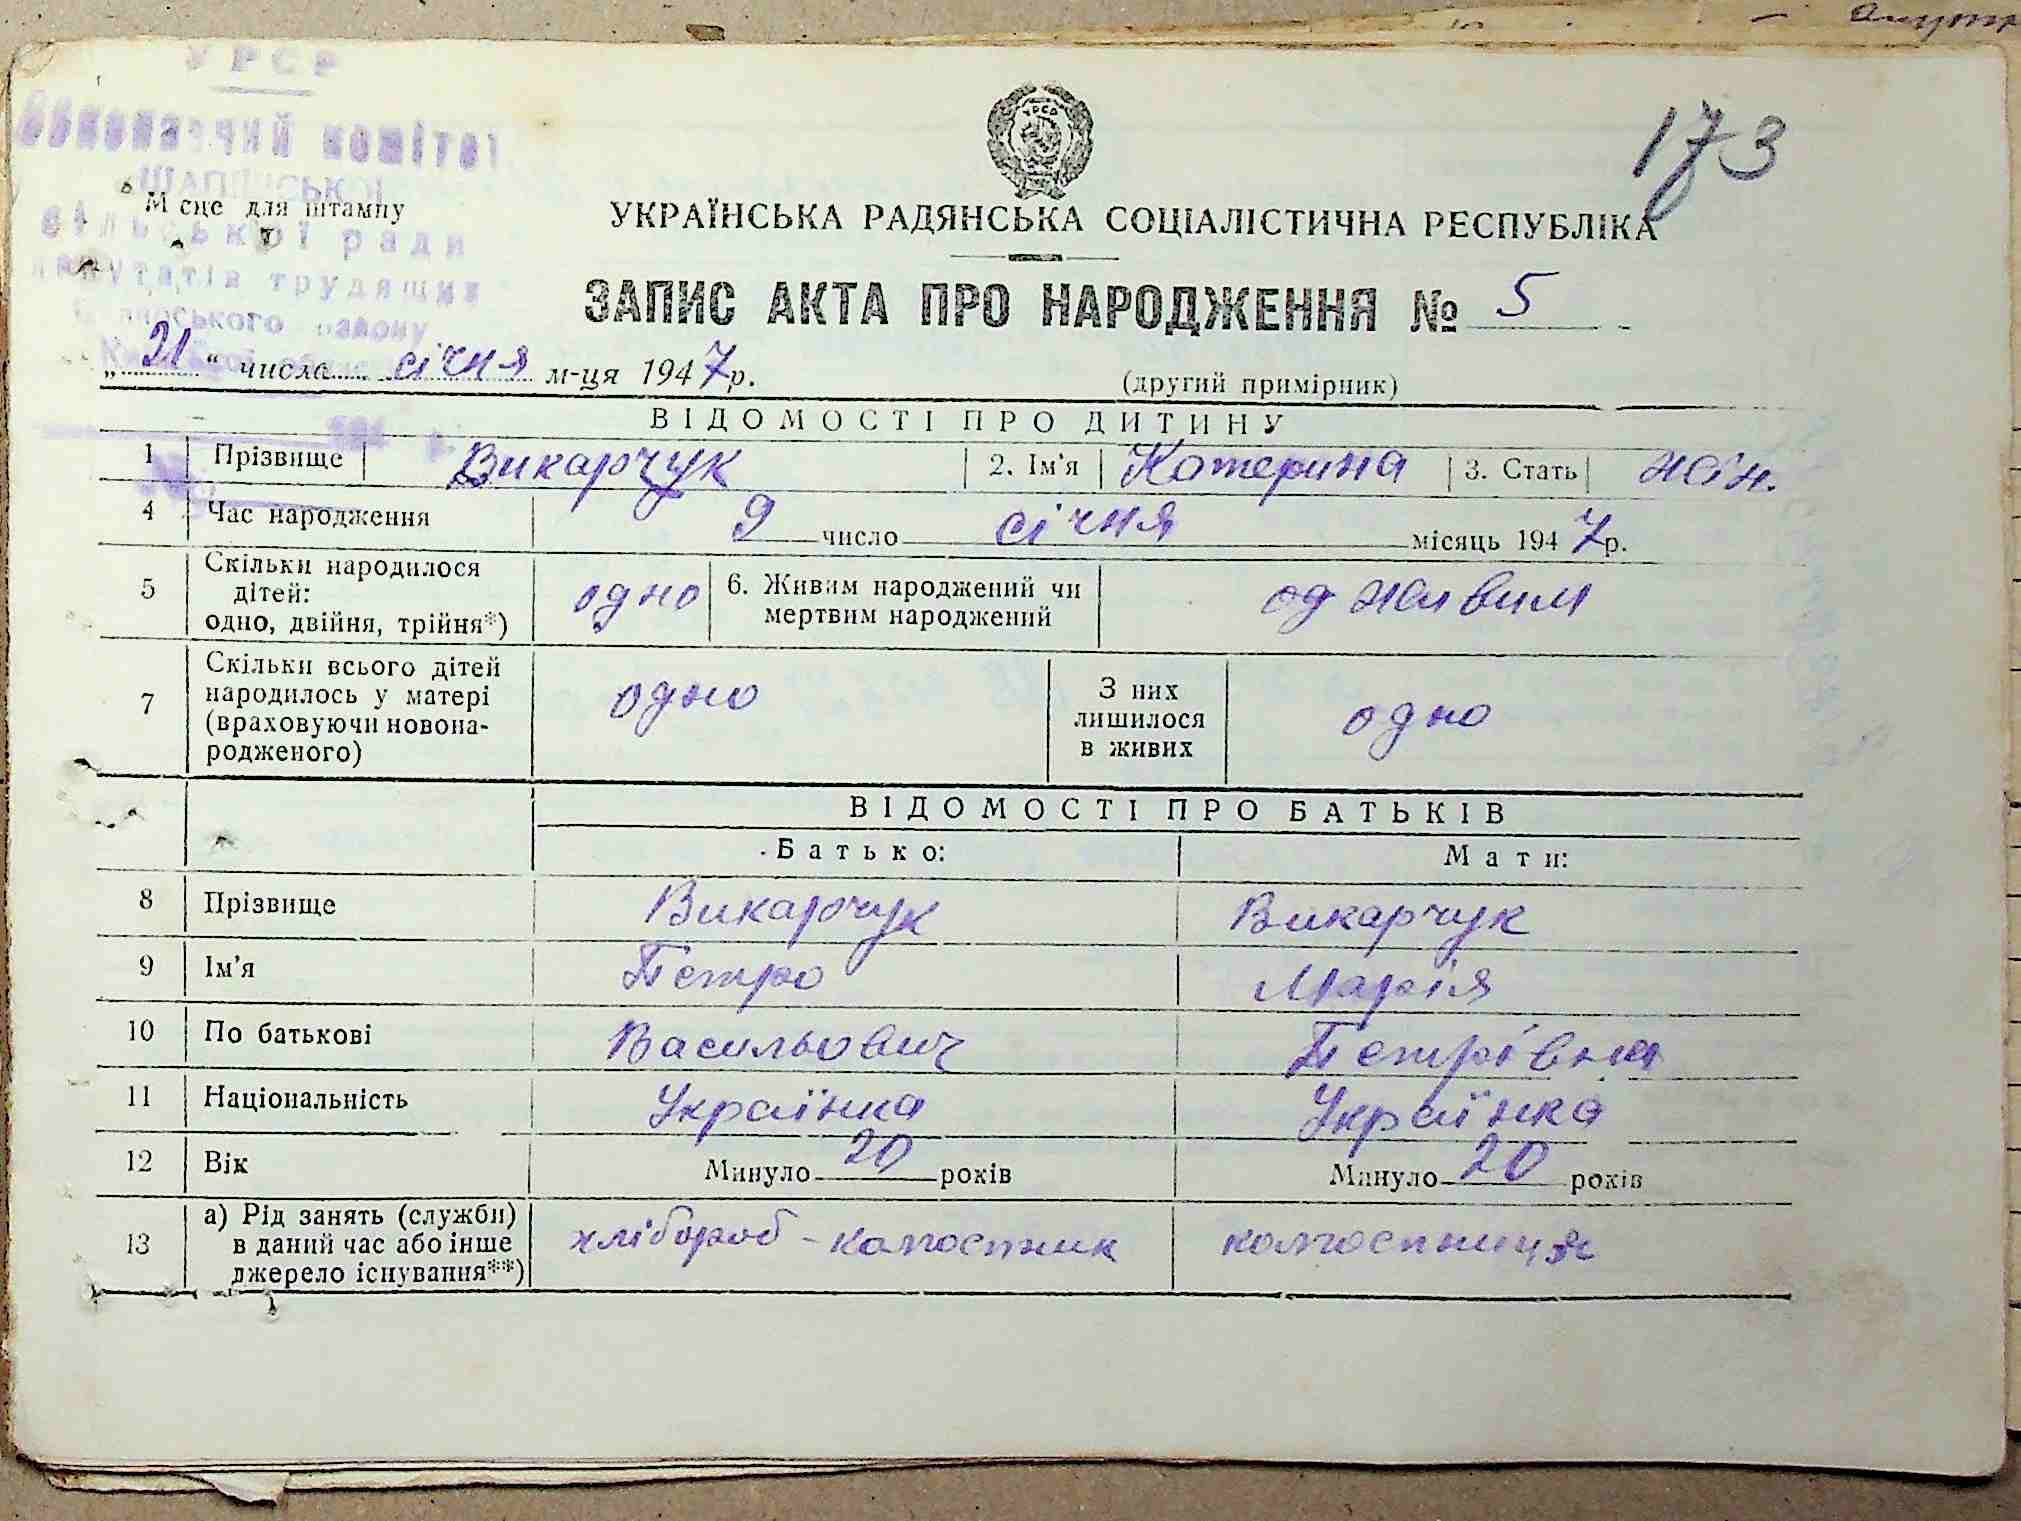 173
УРСР
Виконавчий комітет
сільської ради
депутатів трудящих
району
Місце для штампу
УКРАЇНСЬКА РАДЯНСЬКА СОЦІАЛІСТИЧНА РЕСПУБЛІКА
ЗАПИС АКТА ПРО НАРОДЖЕННЯ № 5
„21“ числа січня м-ця 1947р. (другий примірник)
ВІДОМОСТІ ПРО ДИТИНУ
1 Прізвище Викарчук 2. Ім'я Катерина 3. Стать жін.
4 Час народження 9 число січня місяць 1947р.
5 Скільки народилося дітей: одно, двійня, трійня*) одно 6. Живим народжений чи мертвим народжений од живим
7 Скільки всього дітей народилось у матері (враховуючи новонародженого) одно З них лишилося в живих одно
ВІДОМОСТІ ПРО БАТЬКІВ
Батько: Мати:
8 Прізвище Викарчук Викарчук
9 Ім'я Петро Марія
10 По батькові Васильович Петрівна
11 Національність Українка Українка
12 Вік Минуло 20 років Минуло 20 років
13 а) Рід занять (служби) в даний час або інше джерело існування**) хлібороб - колгоспник колгоспниця